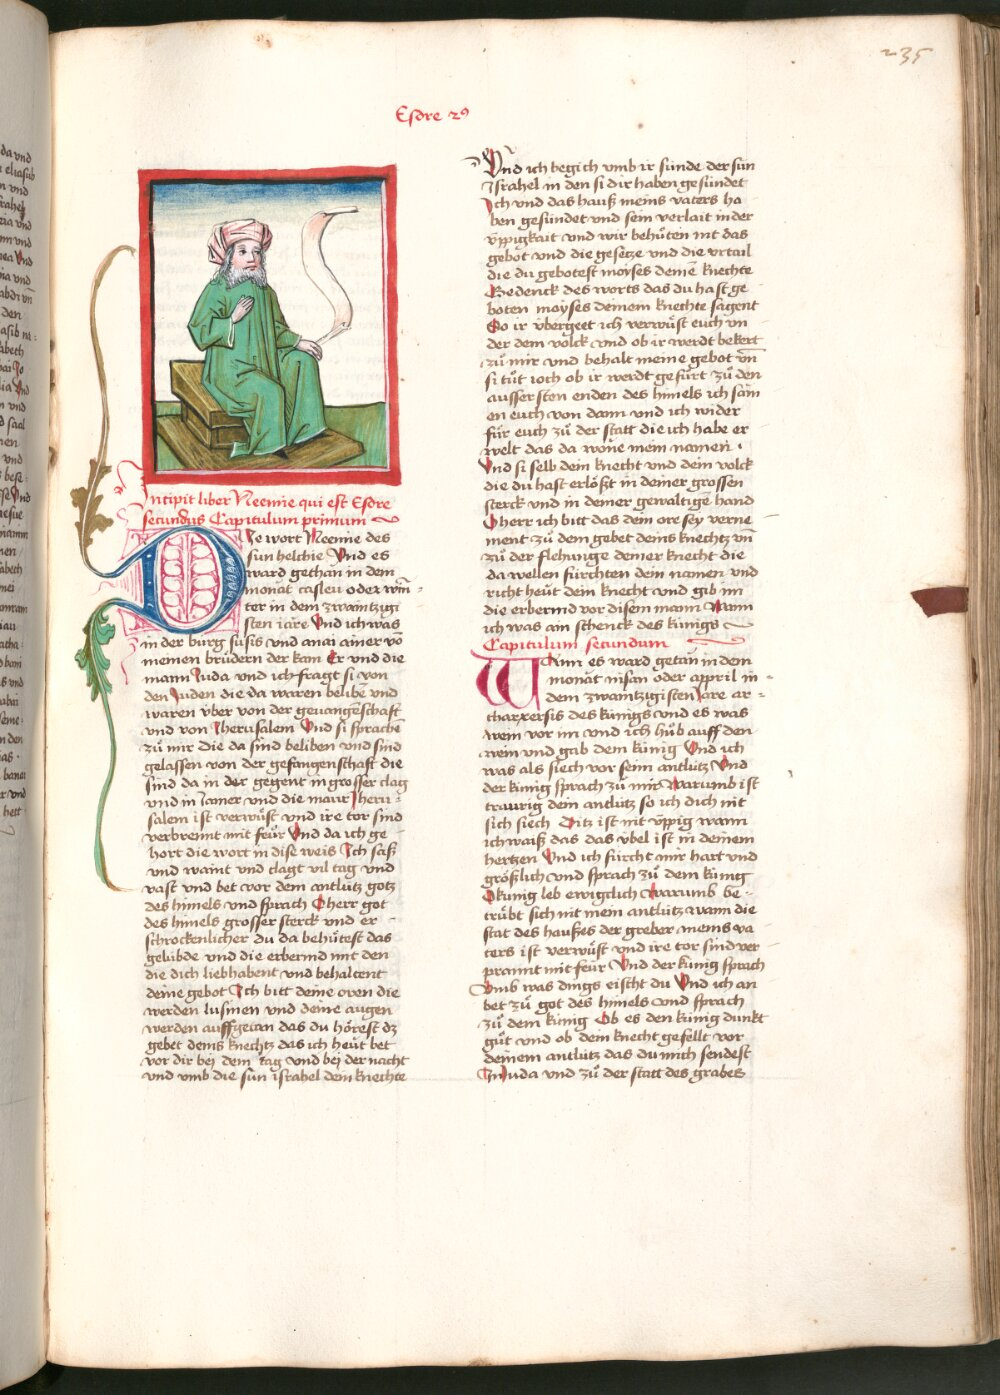 235
Esdre 2⁹
Incipit liber Neemie qui est Esdre
secundus Capitulum primum
Die wort Neemie des
sun helchie Vnd es
ward gethan in dem
monat casleu oder win¬
ter in dem zwaintzigi
sten iare Vnd ich was
in der burg susis vnd anai ainer vō
meinen brüdern der kam Er vnd die
mann Iuda vnd ich fragt si von
den Iuden die da waren belibē vnd
waren über von der geuangēschaft
vnd von Iherusalem Vnd si sprachē
zů mir die da sind beliben vnd sind
gelassen von der gefangenschaft die
sind da in der gegent in grosser clag
vnd in laster vnd die maur Iheru¬
salem ist verwüst vnd ire tor sind
verbrennt mit feür Vnd da ich ge
hort die wort in dise weis Ich saß
vnd waint vnd clagt vil tag vnd
vast vnd bet vor dem antlütz gotz
des himels vnd sprach O herr got
des himels grosser sterck vnd er
schrockenlicher du da behütest das
gelübde vnd die erbermd mit den
die dich liebhabent vnd behaltent
deine gebot Ich bitt deine oren die
werden lusmen vnd deine augen
werden auffgetan das du hörest dz
gebet deins knechtz das ich heüt bet
vor dir bei dem tag vnd bei der nacht
vnd vmb die sün israhel dein knechte
Vnd ich begich vmb ir sünde der sün
Israhel in den si dir haben gesündet
Ich vnd das hauß meins vaters ha
ben gesündet vnd sein verlait in der
üppigkait vnd wir behüten nit das
gebot vnd die gesetze vnd die vrtail
die du gebotest moyses deinē knechte
Gedenck des worts das du hast ge
boten moyses deinem knechte sagent
So ir übergeet ich verwüst euch vn
der dem volck vnd ob ir werdt bekert
zů mir vnd behalt meine gebot vn̄
si tüt ioch ob ir werdt gefürt zů den
aussersten enden des himels ich sam
en euch von dann vnd ich wider
für euch zů der statt die ich habe er
welt das da wone mein namen ·
Vnd si selb dein knecht vnd dein volck
die du hast erlößt in deiner grossen
sterck vnd in deiner gewaltige hand
O herr ich bitt das dein ore sey verne
ment zů dem gebet deins knechtz vn̄
zů der flehunge deiner knecht die
da wellen fürchten dein namen vnd
richt heüt dein knecht vnd gib im
die erbermd vor disem mann Wann
ich was ain schenck des künigs
Capitulum secundum
Wann es ward getan in dem
monat nisan oder appril in
dem zwaintzigisten Iare ar¬
tharxersis des künigs vnd es was
wein vor im vnd ich hůb auff den
wein vnd gab dem künig Vnd ich
was als siech vor seim antlütz Vnd
der künig sprach zů mir Warumb ist
traurig dein antlütz so ich dich nit
sich siech Ditz ist nit üppig wann
ich waiß das das übel ist in deinem
hertzen Vnd ich fürcht mir hart vnd
größlich vnd sprach zů dem künig
O künig leb ewigclich Warumb be
trübt sich nit mein antlütz wann die
stat des haußes der greber meins va
ters ist verwüst vnd ire tor sind ver
prannt mit feür Vnd der künig sprach
Vmb was dings eischt du Vnd ich an
bet zů got des himels vnd sprach
zů dem künig Ob es den künig dunkt
gůt vnd ob dein knecht gefellt vor
deinem antlütz das du mich sendest
In Iuda vnd zů der statt des grabes